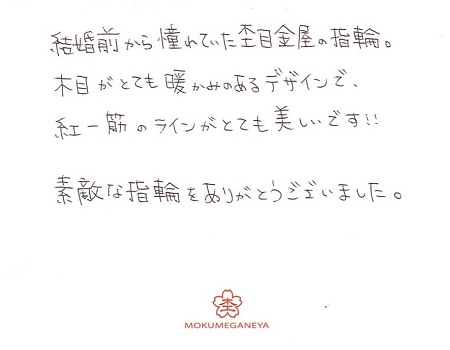 結婚前から憧れていた杢目金屋の指輪。
木目がとても暖かみのあるデザインで、
紅一筋のラインがとても美しいです!!
素敵な指輪をありがとうございました。
杢
MOKUMEGANEYA